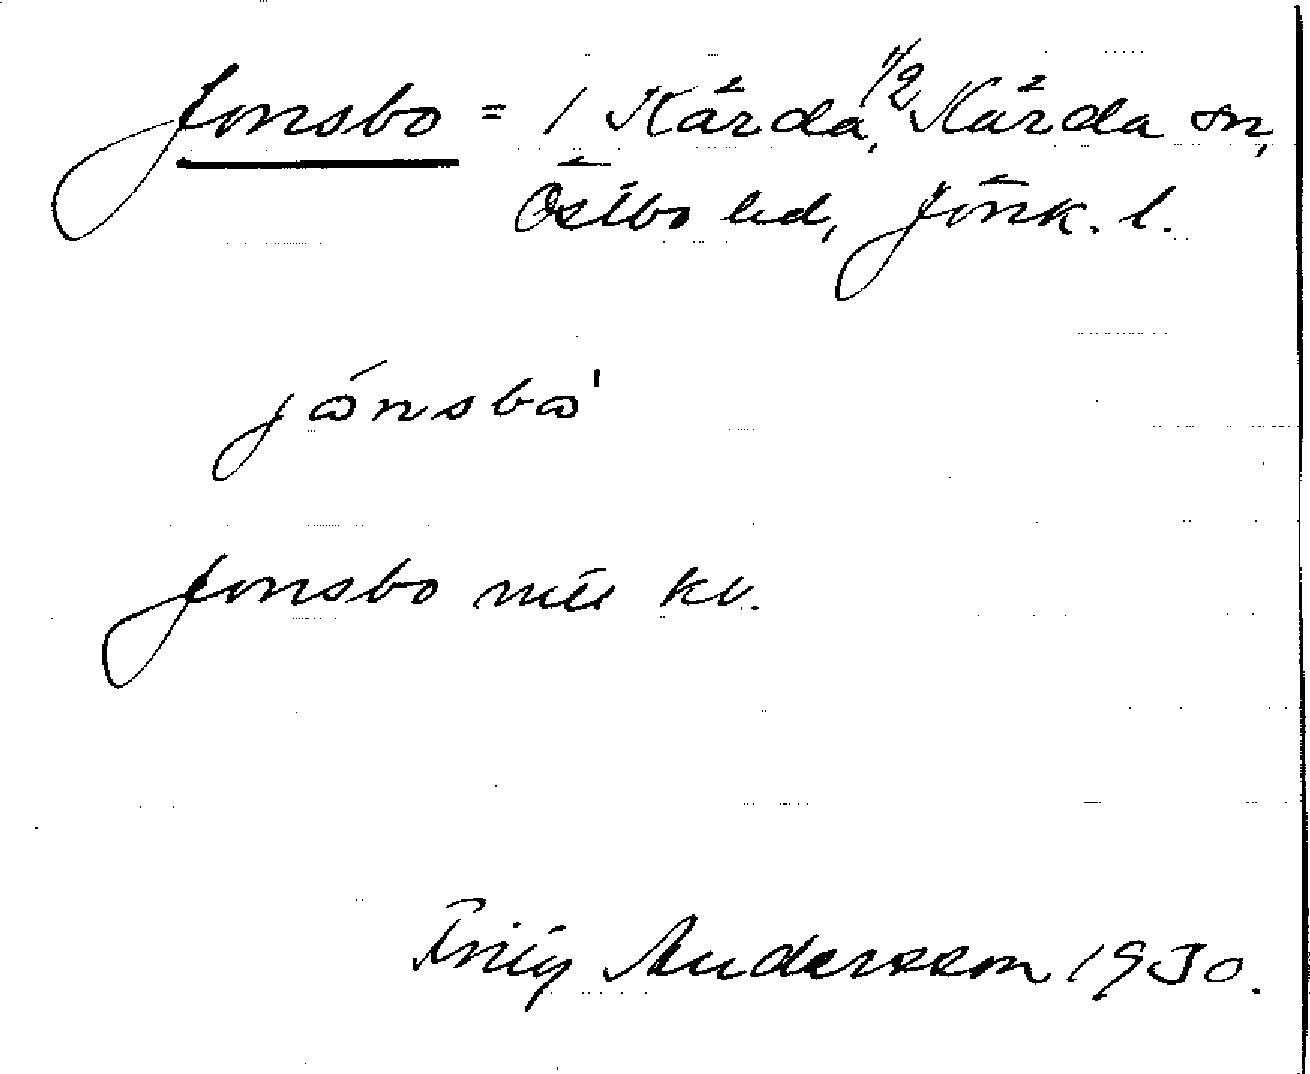 Jonsbo = 1 Kärda, 1/2, Kärda sn,
Östbo hd, Jönk. l.
Jonsbo kv.
Andersson 1930.